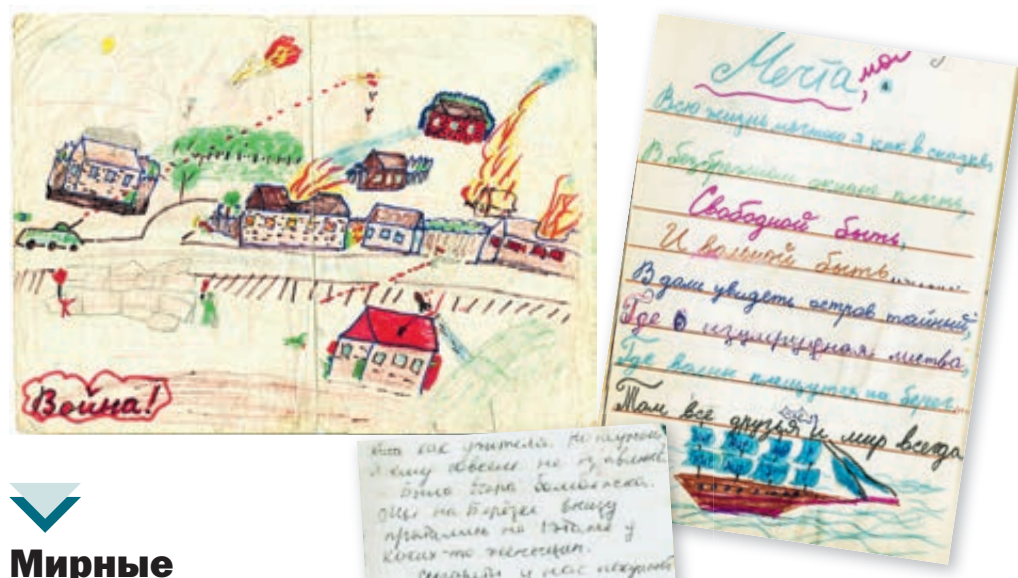 Война!
Мечта, моя
Всю жизнь мечтаю я как в сказке,
В океане плыть,
Свободной быть,
И вольной быть........
В дали увидеть остров тайный,
Где изумрудная листва,
Где волны плещутся на берег...
Там все друзья и мир всегда
как учителя. Но
совсем не
Была вчера бомбежка.
Мы на Берёзке внизу
прятались на 1 этаже у
каких-то женщин.
у нас
Мирные